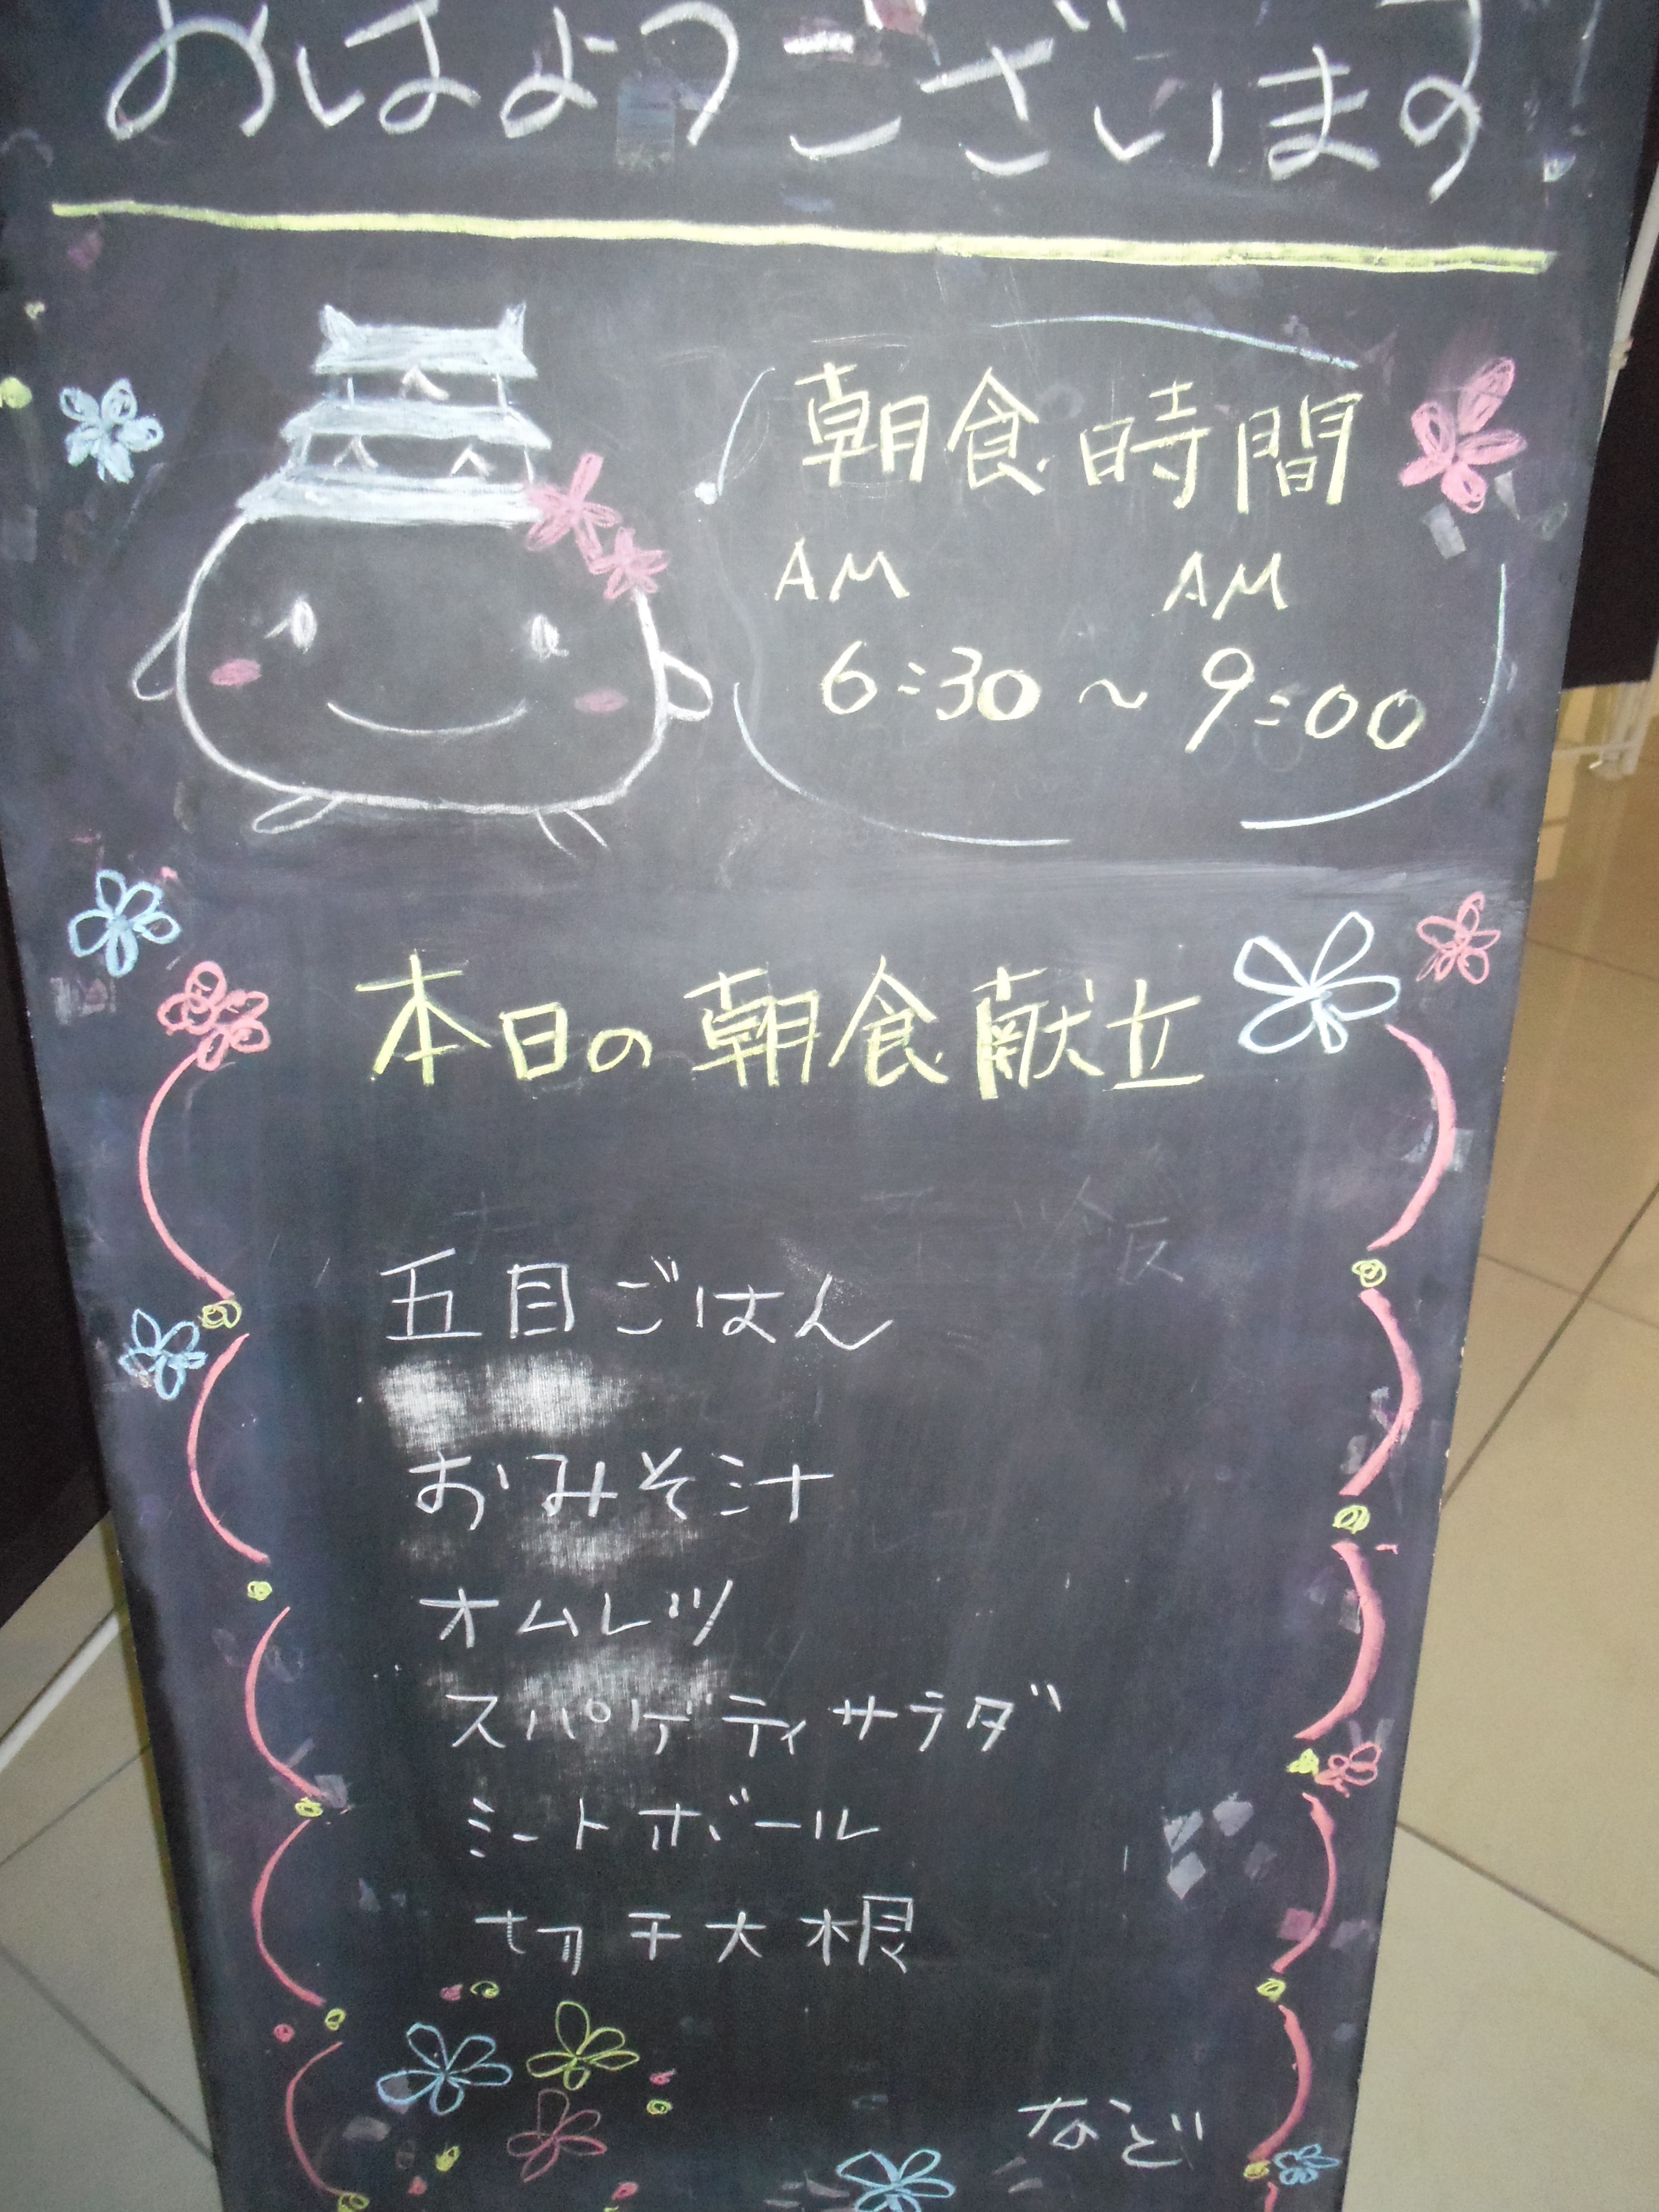 おはようございます!
朝食時間
AM AM
6:30~9:00
本日の朝食献立
五目ごはん
おみそ汁
オムレツ
スパゲティサラダ
ミートボール
切干大根
など